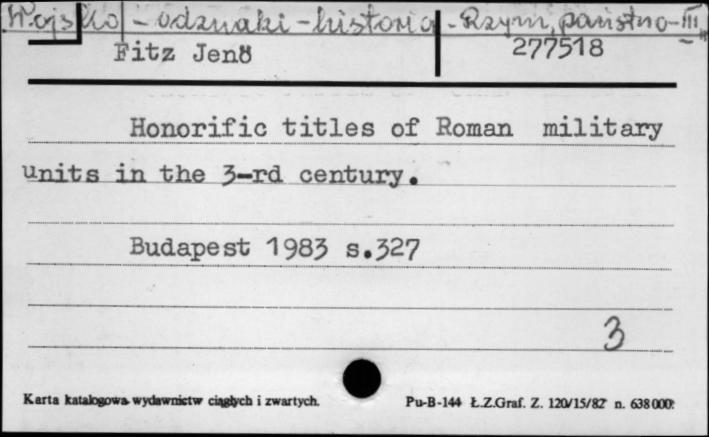 Wojsko - odznaki - historia - Rzym, państwo - III w
Fitz Jenö 277518
Honorific titles of Roman military
units in the 3-rd century.
Budapest 1983 s.327
3
Karta katalogowa wydawnictw ciągłych i zwartych. Pu-B-144 Ł.Z.Graf. Z. 120/15/82 n. 638 000.